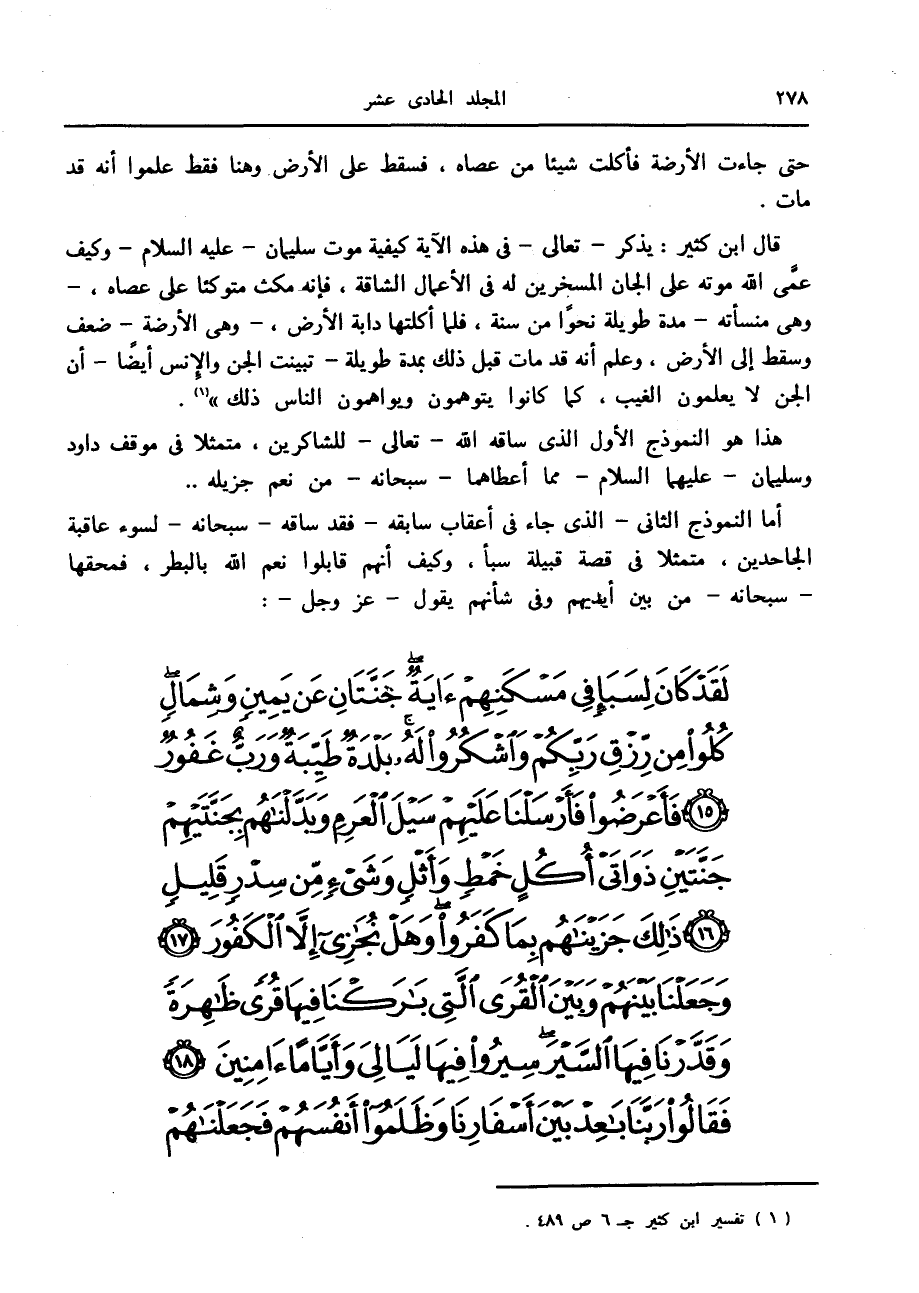 ٢٧٨ المجلد الحادى عشر
حتى جاءت الأرضة فأكلت شيئا من عصاه ، فسقط على الأرض وهنا فقط علموا أنه قد
مات .
قال ابن كثير : يذكر – تعالى – فى هذه الآية كيفية موت سليمان – عليه السلام – وكيف
عمَّى الله موته على الجان المسخرين له فى الأعمال الشاقة ، فإنه مكث متوكئا على عصاه ، –
وهى منسأته – مدة طويلة نحوًا من سنة ، فلما أكلتها دابة الأرض ، – وهى الأرضة – ضعف
وسقط إلى الأرض ، وعلم أنه قد مات قبل ذلك بمدة طويلة – تبينت الجن والإنس أيضًا – أن
الجن لا يعلمون الغيب ، كما كانوا يتوهمون ويواهمون الناس ذلك »(١) .
هذا هو النموذج الأول الذى ساقه الله – تعالى – للشاكرين ، متمثلا فى موقف داود
وسليمان – عليهما السلام – مما أعطاهما – سبحانه – من نعم جزيله ..
أما النموذج الثانى – الذى جاء فى أعقاب سابقه – فقد ساقه – سبحانه – لسوء عاقبة
الجاحدين ، متمثلا فى قصة قبيلة سبأ ، وكيف أنهم قابلوا نعم الله بالبطر ، فمحقها
– سبحانه – من بين أيديهم وفى شأنهم يقول – عز وجل – :
لَقَدْ كَانَ لِسَبَإٍ فِي مَسْكَنِهِمْ ءَايَةٌ ۖ جَنَّتَانِ عَن يَمِينٍ وَشِمَالٍ ۖ
كُلُوا۟ مِن رِّزْقِ رَبِّكُمْ وَٱشْكُرُوا۟ لَهُۥ ۚ بَلْدَةٌ طَيِّبَةٌ وَرَبٌّ غَفُورٌ
١٥ فَأَعْرَضُوا۟ فَأَرْسَلْنَا عَلَيْهِمْ سَيْلَ ٱلْعَرِمِ وَبَدَّلْنَٰهُم بِجَنَّتَيْهِمْ
جَنَّتَيْنِ ذَوَاتَىْ أُكُلٍ خَمْطٍ وَأَثْلٍ وَشَىْءٍ مِّن سِدْرٍ قَلِيلٍ
١٦ ذَٰلِكَ جَزَيْنَٰهُم بِمَا كَفَرُوا۟ ۖ وَهَلْ نُجَٰزِىٓ إِلَّا ٱلْكَفُورَ ١٧
وَجَعَلْنَا بَيْنَهُمْ وَبَيْنَ ٱلْقُرَى ٱلَّتِى بَٰرَكْنَا فِيهَا قُرًى ظَٰهِرَةً
وَقَدَّرْنَا فِيهَا ٱلسَّيْرَ ۖ سِيرُوا۟ فِيهَا لَيَالِىَ وَأَيَّامًا ءَامِنِينَ ١٨
فَقَالُوا۟ رَبَّنَا بَٰعِدْ بَيْنَ أَسْفَارِنَا وَظَلَمُوٓا۟ أَنفُسَهُمْ فَجَعَلْنَٰهُمْ
( ١ ) تفسير ابن كثير جـ ٦ ص ٤٨٩ .